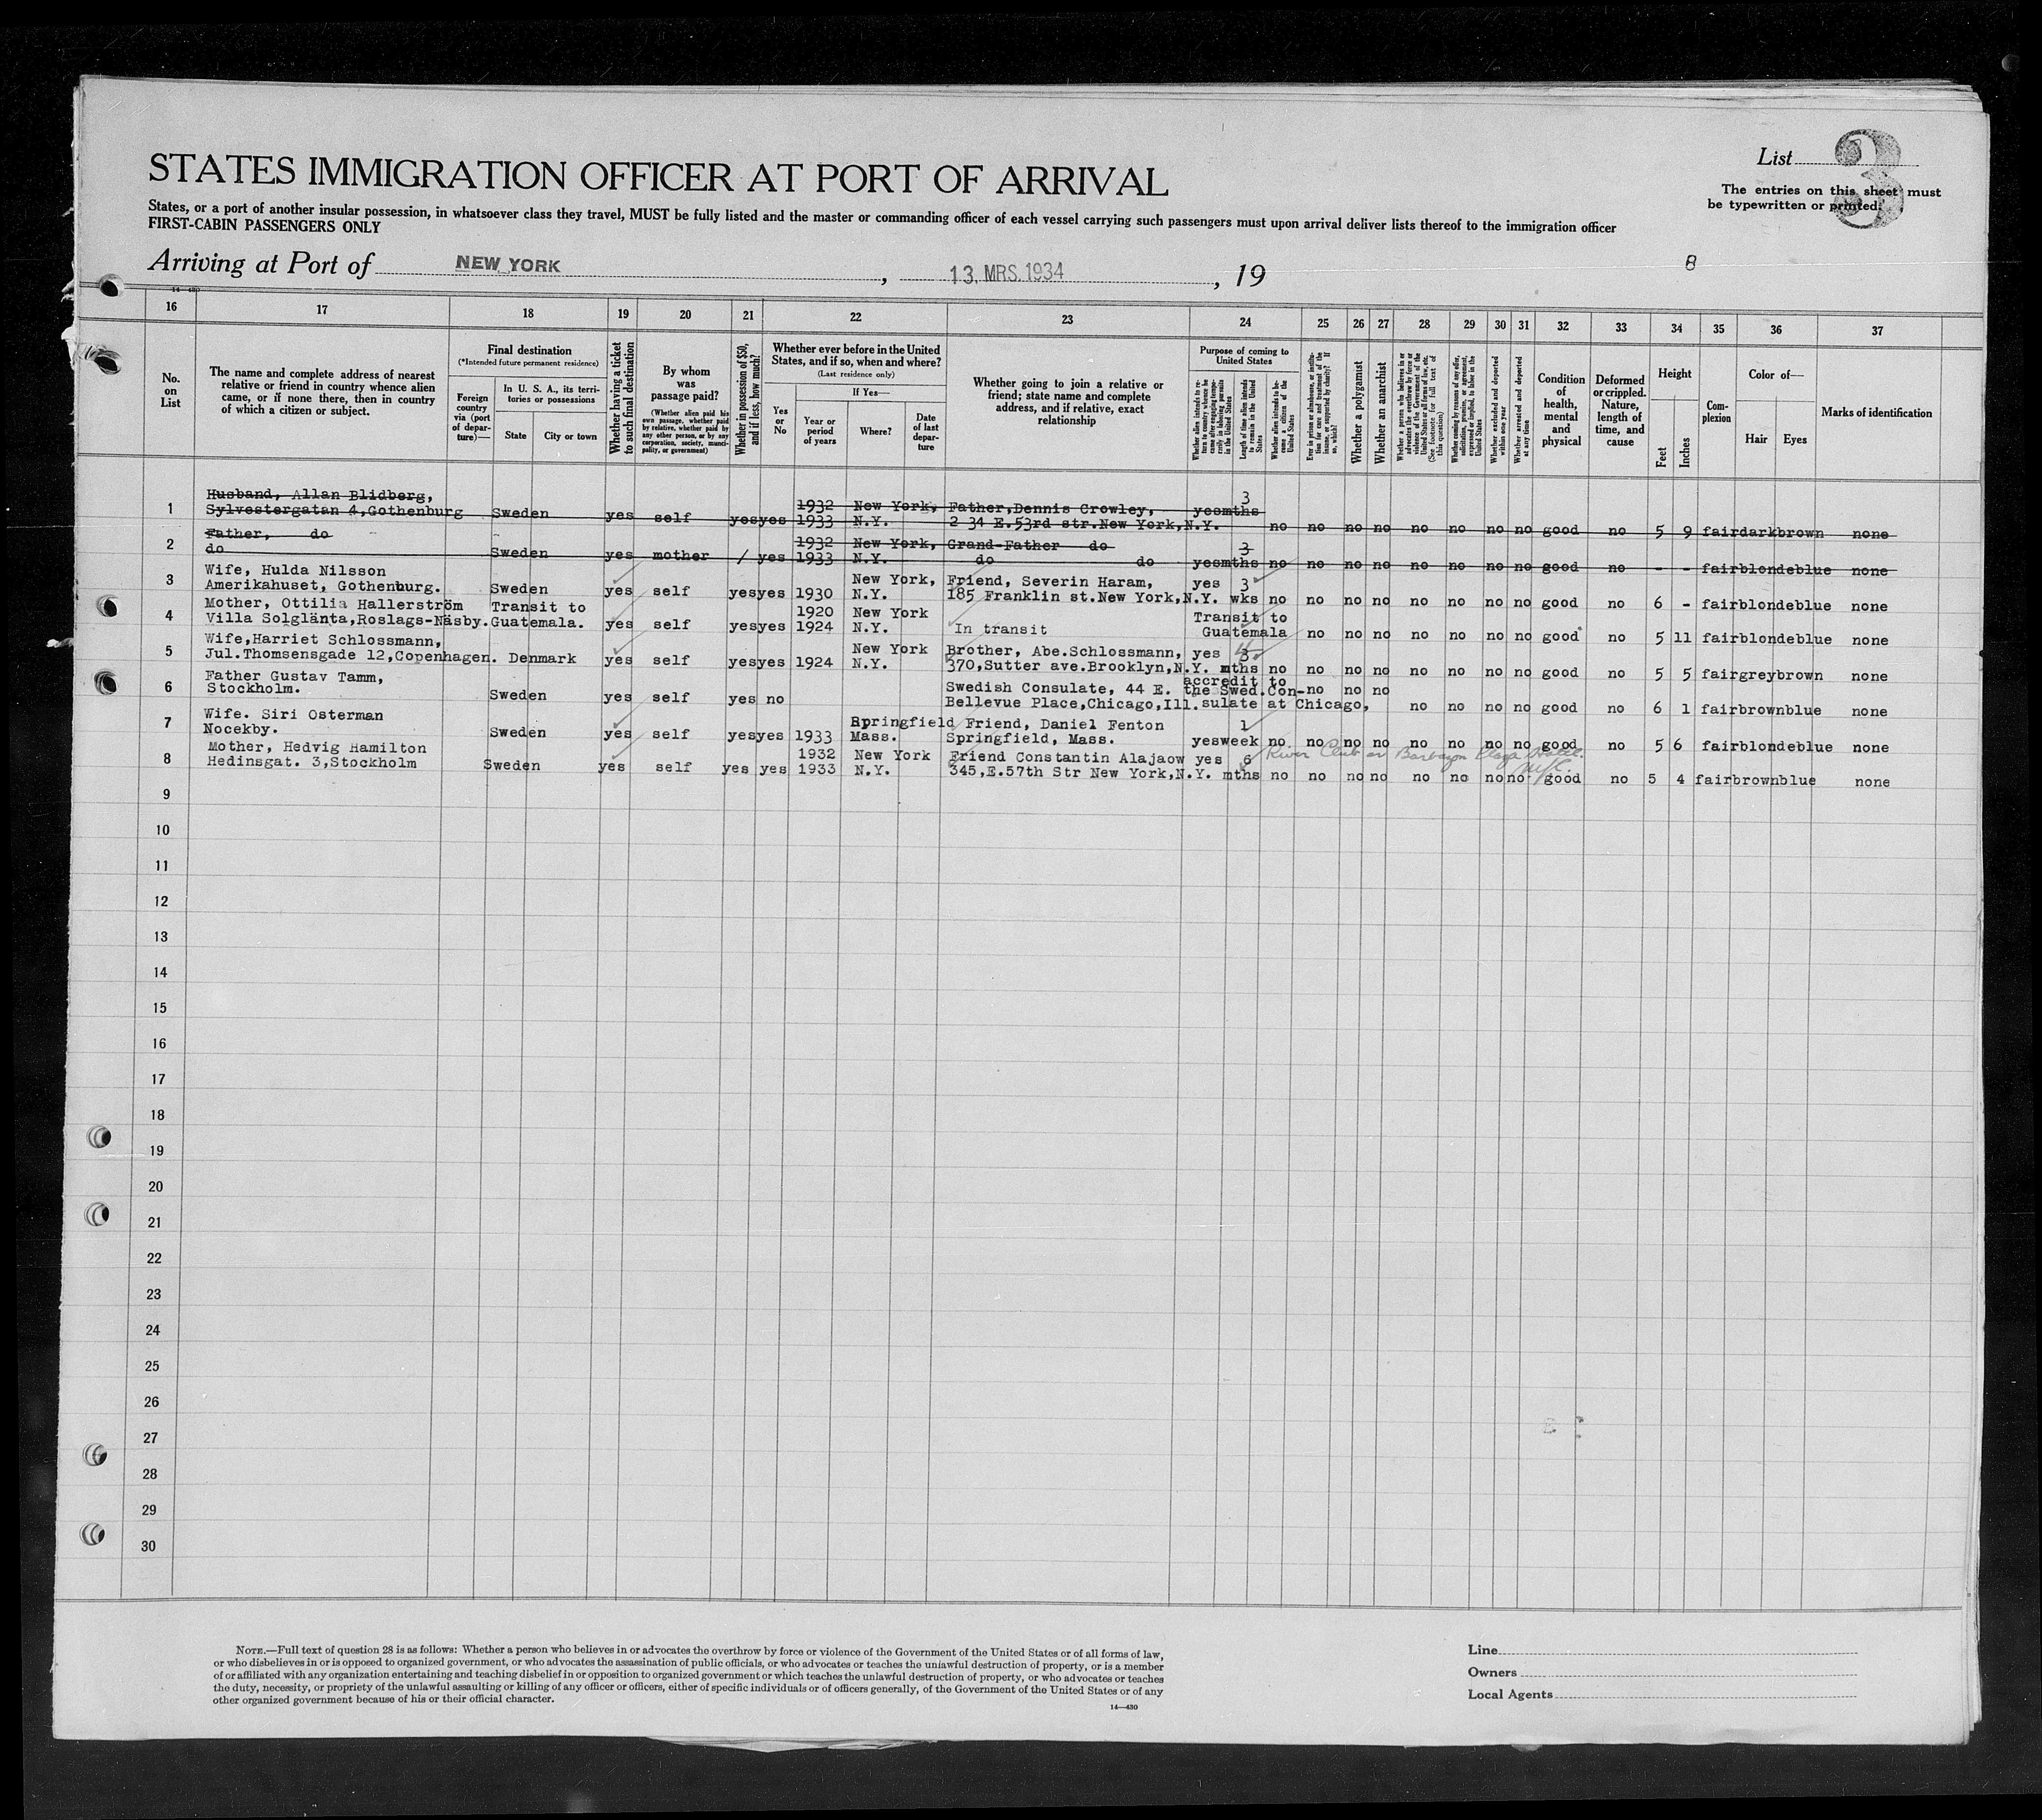 List 3
STATES IMMIGRATION OFFICER AT PORT OF ARRIVAL
The entries on this sheet must
be typewritten or printed.
States, or a port of another insular possession, in whatsoever class they travel, MUST be fully listed and the master or commanding officer of each vessel carrying such passengers must upon arrival deliver lists thereof to the immigration officer
FIRST-CABIN PASSENGERS ONLY
Arriving at Port of NEW YORK, 13. MRS. 1934, 19
8
16 17 18 19 20 21 22 23 24 25 26 27 28 29 30 31 32 33 34 35 36 37
No. on List
The name and complete address of nearest
relative or friend in country whence alien
came, or if none there, then in country
of which a citizen or subject.
Final destination
(*Intended future permanent residence)
Foreign country via (port of departure)—
In U. S. A., its territories or possessions
State
City or town
Whether having a ticket to such final destination
By whom was passage paid?
(Whether alien paid his own passage, whether paid by relative, whether paid by any other person, or by any corporation, society, municipality, or government)
Whether in possession of $50, and if less, how much?
Whether ever before in the United
States, and if so, when and where?
(Last residence only)
Yes or No
If Yes—
Year or period of years
Where?
Date of last departure
Whether going to join a relative or
friend; state name and complete
address, and if relative, exact
relationship
Purpose of coming to United States
Length of time alien intends to remain in the United States
Whether alien intends to become a citizen of the United States
Whether a polygamist
Whether an anarchist
Whether excluded and deported within one year
Whether arrested and deported at any time
Condition of health, mental and physical
Deformed or crippled. Nature, length of time, and cause
Height
Feet
Inches
Complexion
Color of—
Hair
Eyes
Marks of identification
1 Husband, Allan Blidberg, 1932 New York, Father,Dennis Crowley, 3
Sylvestergatan 4,Gothenburg Sweden yes self yes yes 1933 N.Y. 2 34 E.53rd str.New York,N.Y. yes mths no no no no no no no no good no 5 9 fair darkbrown none
2 Father, do 1932 New York, Grand-Father do 3
do Sweden yes mother / yes 1933 N.Y. do do yes mths no no no no no no no no good no - - fair blonde blue none
3 Wife, Hulda Nilsson New York, Friend, Severin Haram, yes 3
Amerikahuset, Gothenburg. Sweden yes self yes yes 1930 N.Y. 185 Franklin st.New York,N.Y. wks no no no no no no no no good no 6 - fair blonde blue none
4 Mother, Ottilia Hallerström Transit to 1920 New York Transit to
Villa Solglänta,Roslags-Näsby. Guatemala. yes self yes yes 1924 N.Y. In transit Guatemala no no no no no no no good no 5 11 fair blonde blue none
5 Wife,Harriet Schlossmann, New York Brother, Abe.Schlossmann, yes
Jul.Thomsensgade 12,Copenhagen. Denmark yes self yes yes 1924 N.Y. 370,Sutter ave.Brooklyn,N.Y. mths no no no no no no no no good no 5 5 fair grey brown none
6 Father Gustav Tamm, accredit to
Stockholm. Sweden yes self yes no Swedish Consulate, 44 E. the Swed.Con- no no no
Bellevue Place,Chicago,Ill. sulate at Chicago, no no no no good no 6 1 fair brown blue none
7 Wife. Siri Osterman Springfield Friend, Daniel Fenton 1
Nocekby. Sweden yes self yes yes 1933 Mass. Springfield, Mass. yes week no no no no no no no no good no 5 6 fair blonde blue none
8 Mother, Hedvig Hamilton 1932 New York Friend Constantin Alajaow yes 6 River Club or Barbizon Plaza Hotel. NYC.
Hedinsgat. 3,Stockholm Sweden yes self yes yes 1933 N.Y. 345,E.57th Str New York,N.Y. mths no no no no no no no no good no 5 4 fair brown blue none
9
10
11
12
13
14
15
16
17
18
19
20
21
22
23
24
25
26
27
28
29
30
NOTE.—Full text of question 28 is as follows: Whether a person who believes in or advocates the overthrow by force or violence of the Government of the United States or of all forms of law,
or who disbelieves in or is opposed to organized government, or who advocates the assassination of public officials, or who advocates or teaches the unlawful destruction of property, or is a member
of or affiliated with any organization entertaining and teaching disbelief in or opposition to organized government or which teaches the unlawful destruction of property, or who advocates or teaches
the duty, necessity, or propriety of the unlawful assaulting or killing of any officer or officers, either of specific individuals or of officers generally, of the Government of the United States or of any
other organized government because of his or their official character.
14—430
Line
Owners
Local Agents